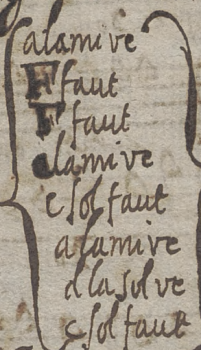 alamire
F faut
F faut
elamire
c sol faut
alamire
d la sol re
c sol faut